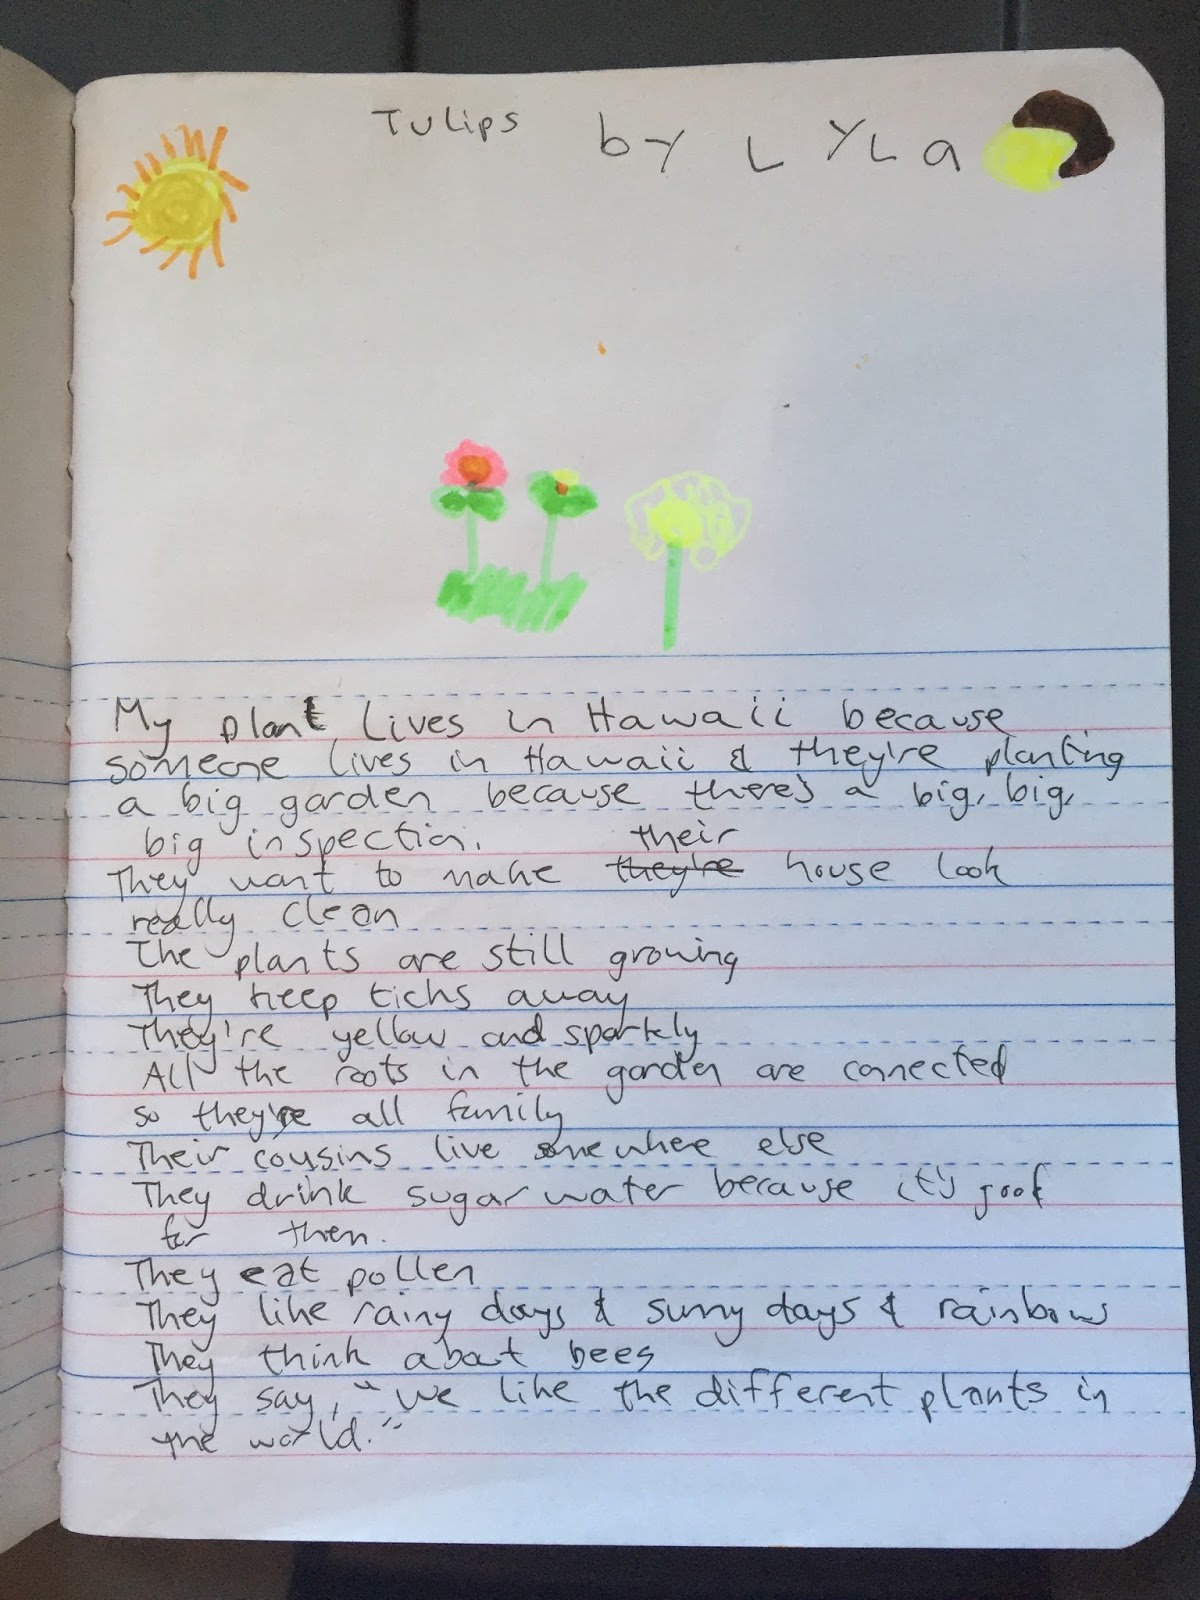 Tulips by LYLa
My plant lives in Hawaii because
someone lives in Hawaii & they're planting
a big garden because there's a big, big,
big inspection.
They want to make they're their house look
really clean
The plants are still growing
They keep ticks away
They're yellow and sparkly
All the roots in the garden are connected
so they're all family
Their cousins live somewhere else
They drink sugar water because it's good
for them.
They eat pollen
They like rainy days & sunny days & rainbows
They think about bees
They say, "we like the different plants in
the world."